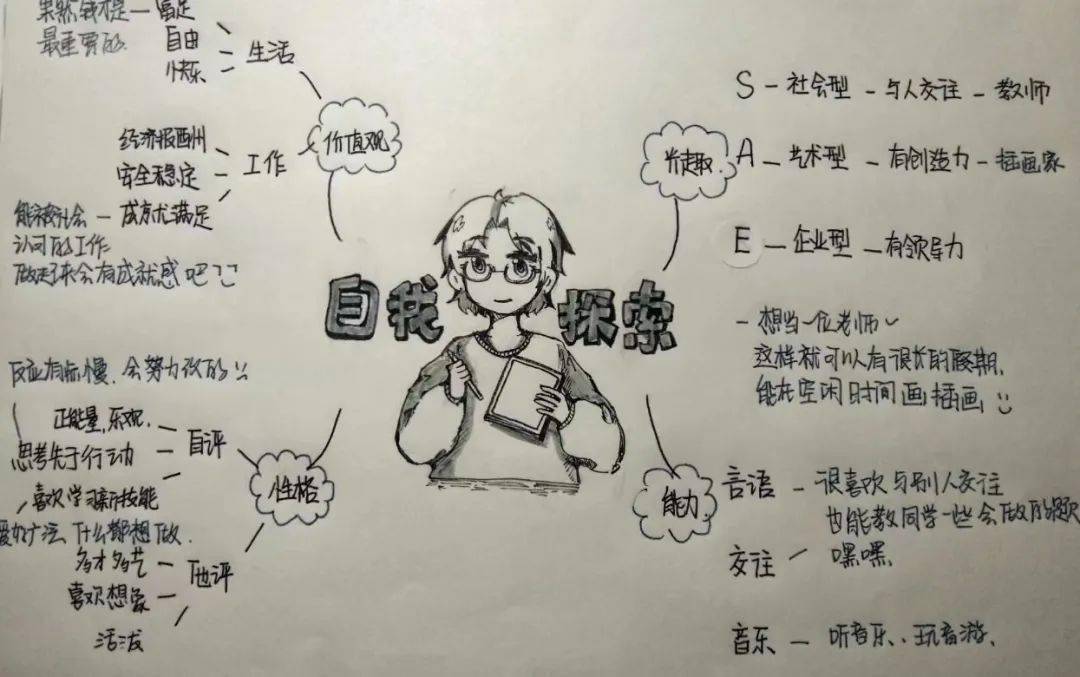 果然钱才是 — 富足
最重要的
自由
快乐
生活
价值观
经济报酬
安全稳定
成就满足
工作
能被社会
认可的工作
做起来会有成就感吧
自我探索
兴趣
S — 社会型 — 与人交往 — 教师
A — 艺术型 — 有创造力 — 插画家
E — 企业型 — 有领导力
— 想当一位老师~
这样就可以有很长的假期,
能在空闲时间画插画
反应有点慢,会努力改的
正能量,乐观.
思考先于行动
喜欢学习新技能
自评
性格
爱好广泛,什么都想做.
多才多艺
喜欢想象
活泼
他评
能力
言语 — 很喜欢与别人交往
也能教同学一些会做的题
交往
嘿嘿
音乐 — 听音乐、玩音游、